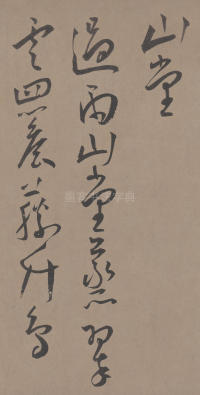 山堂
過雨山堂蒸翠
雲四簷藤竹鳥